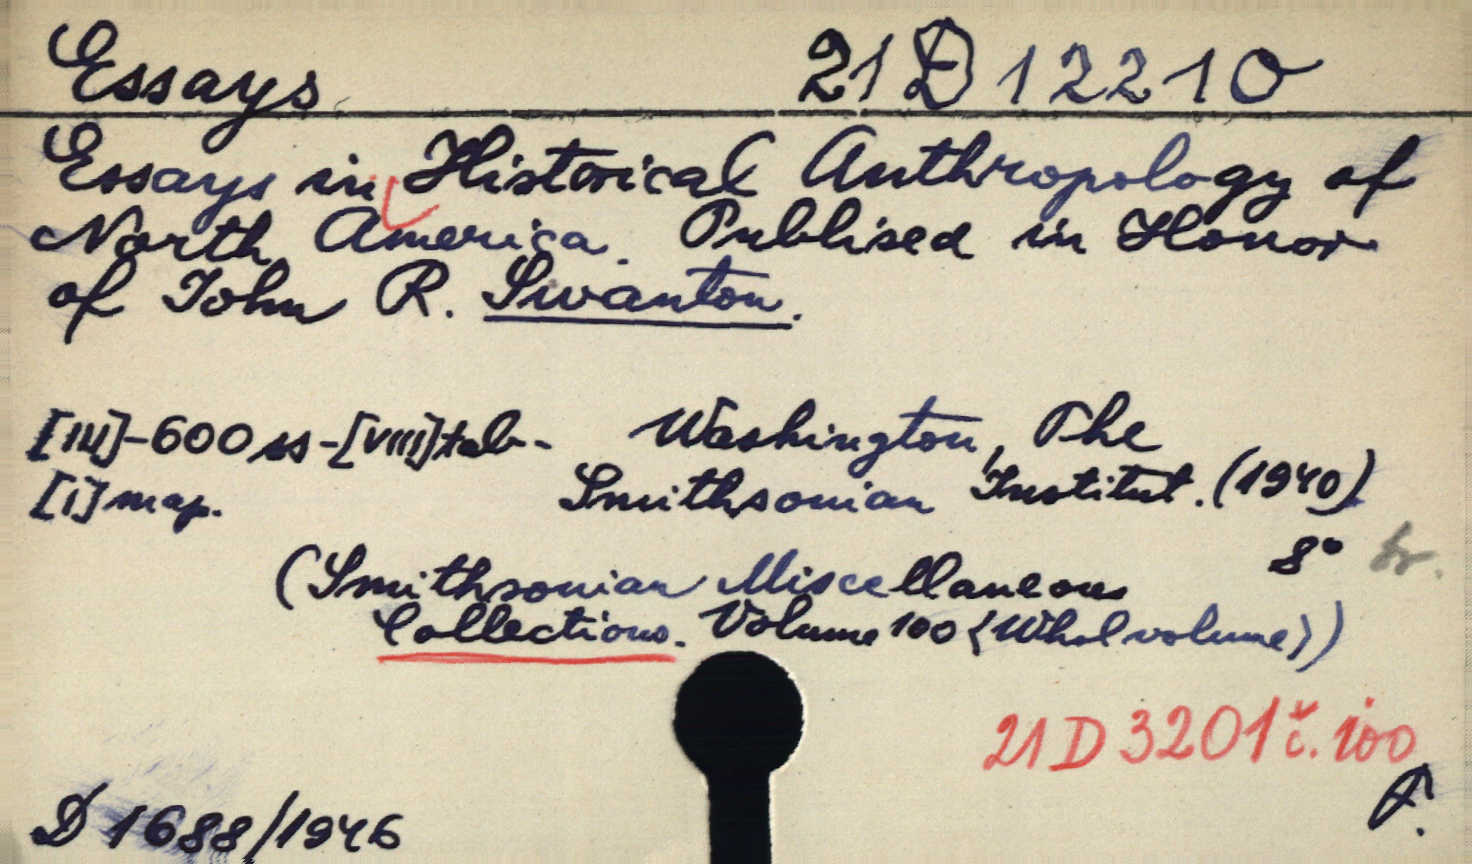 Essays 21 D 12210
Essays in Historical Anthropology of
North America. Publised in Honor
of John R. Swanton.
[III]-600 ss-[VIII] tab- Washington, The
[I] map. Smithsonian Institut. (1940)
8° br.
(Smithsonian Miscellaneous
Collections. Volume 100 <Whol volume>)
21 D 3201 č. 100
D 1688/1946